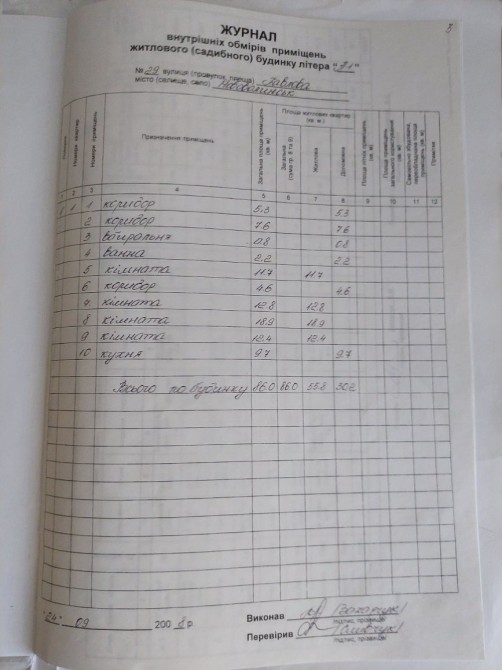 3
ЖУРНАЛ
внутрішніх обмірів приміщень
житлового (садибного) будинку літера "
№ 29 вулиця (провулок, площа)
місто (селище, село)
Номери квартир
Номери приміщень
Призначення приміщень
Загальна площа приміщень (кв. м)
Площа житлових квартир (кв. м.)
Загальна (сума гр. 7 та 8)
Житлова
Допоміжна
1 2 3 4 5 6 7 8 9 10 11 12
1 1 1 коридор 5.3 5.3
2 коридор 7.6 7.6
3 вбиральня 0.8 0.8
4 ванна 2.2 2.2
5 кімната 11.7 11.7
6 коридор 4.6 4.6
7 кімната 12.8 12.8
8 кімната 18.9 18.9
9 кімната 12.4 12.4
10 кухня 9.7 9.7
Всього по будинку 86.0 86.0 55.8 30.2
"24" 09 2008р
Виконав
підпис, прізвище
Перевірив
підпис, прізвище